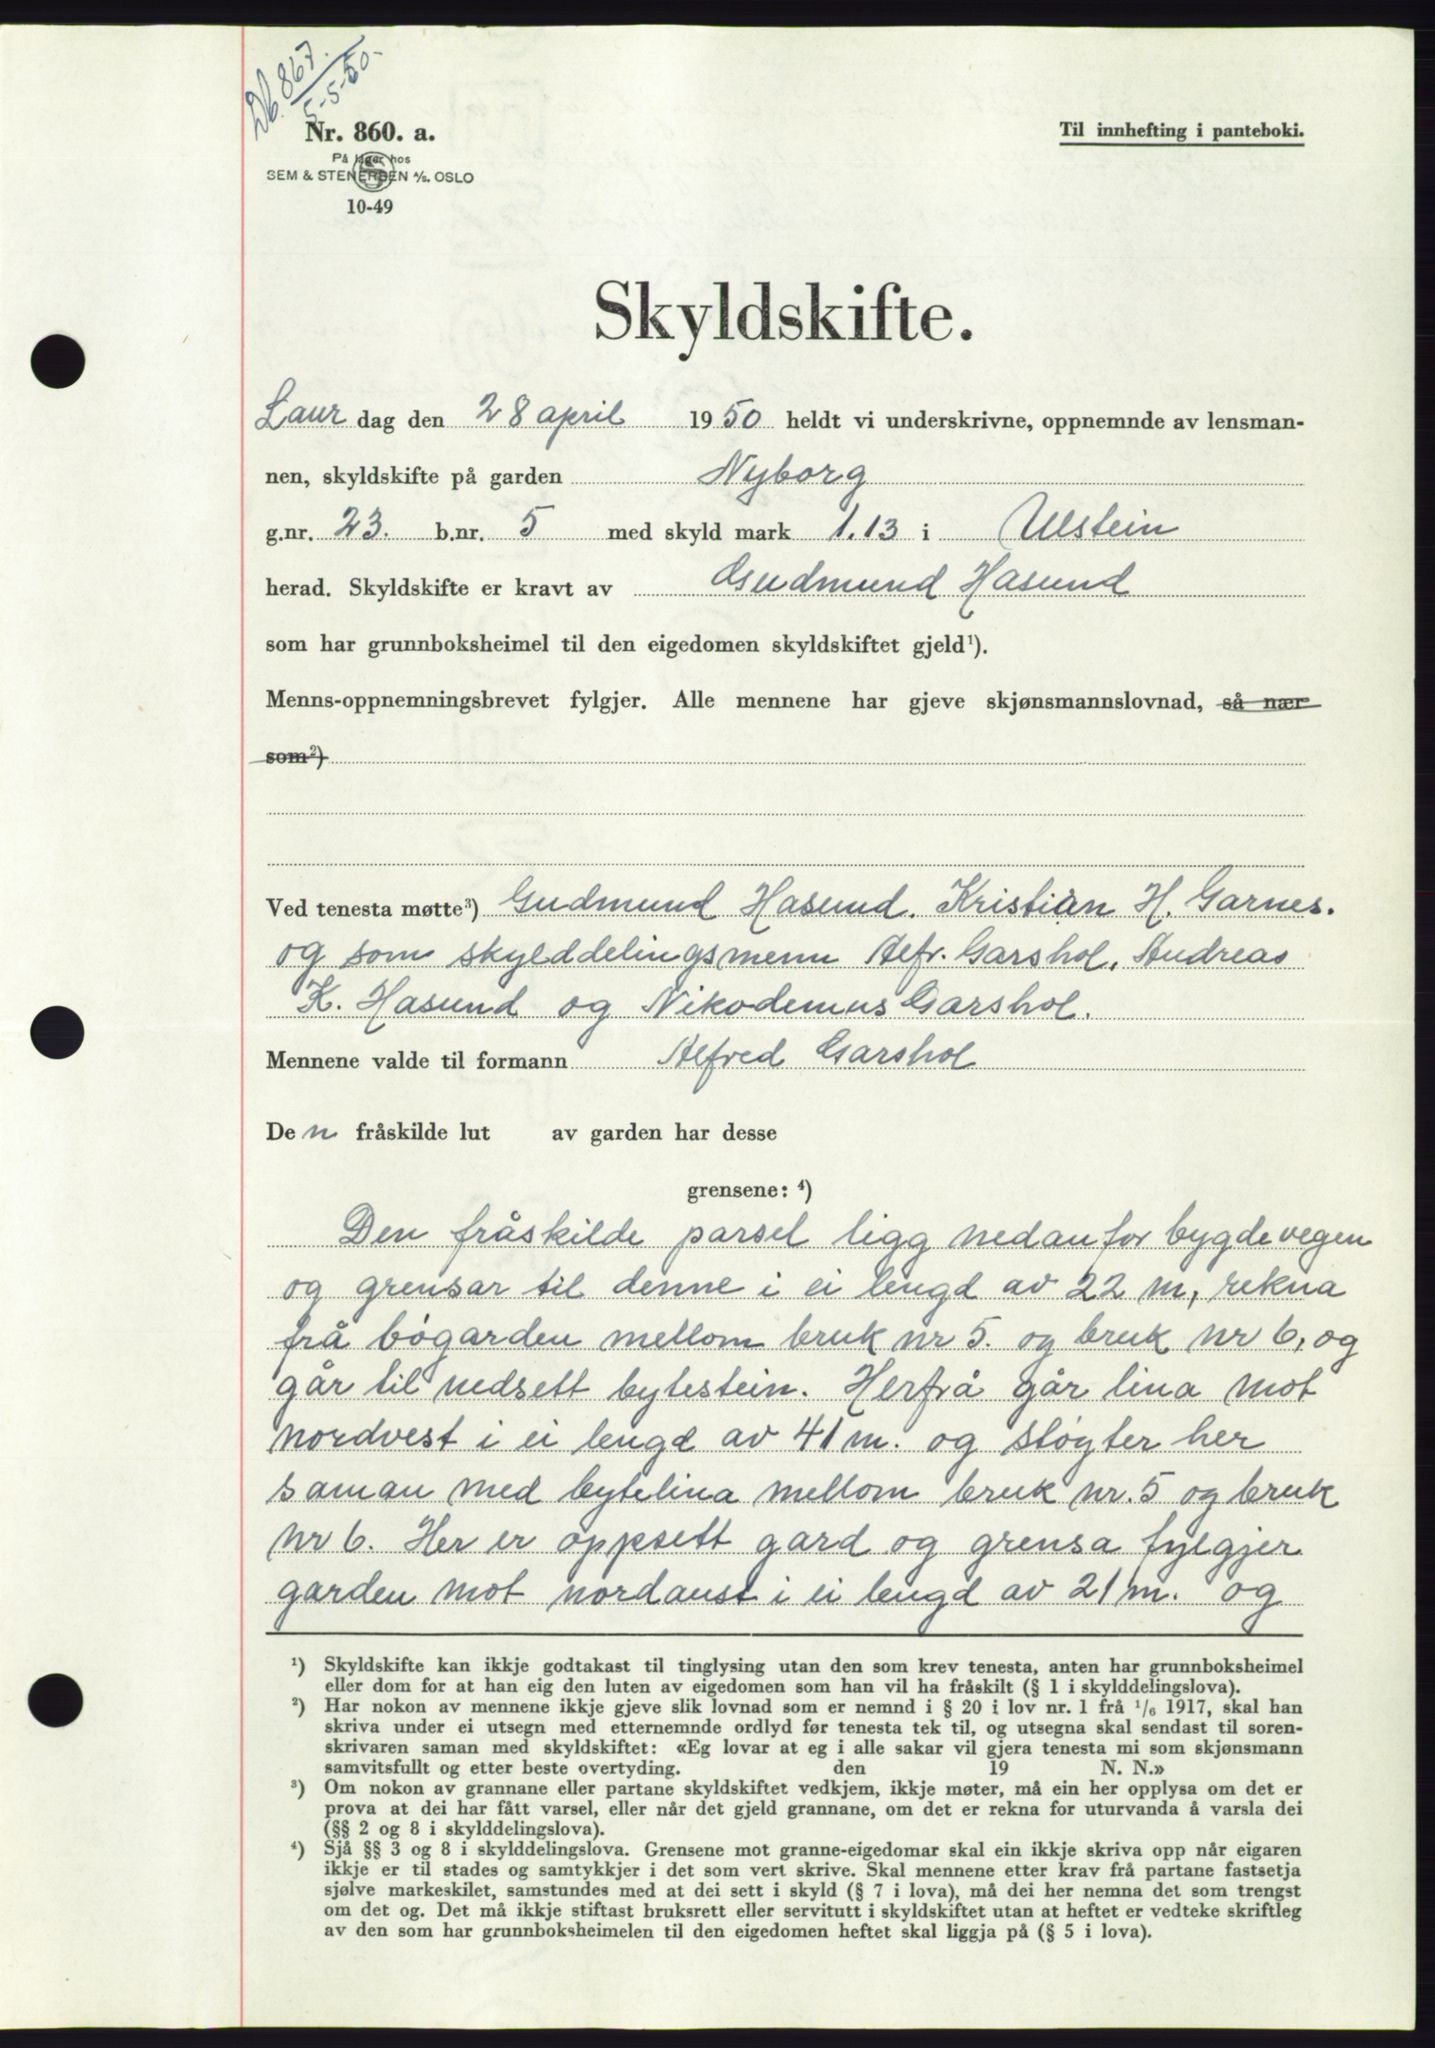 Db. 867.
5-5-50-
Nr. 860. a.
På lager hos
SEM & STENERSEN A/S. OSLO
10-49
Til innhefting i panteboki.
Skyldskifte.
Laur dag den 28 april 1950 heldt vi underskrivne, oppnemnde av lensman-
nen, skyldskifte på garden Nyborg
g.nr. 23. b.nr. 5 med skyld mark 1.13 i Ulstein
herad. Skyldskifte er kravt av Gudmund Hasund
som har grunnboksheimel til den eigedomen skyldskiftet gjeld¹).
Menns-oppnemningsbrevet fylgjer. Alle mennene har gjeve skjønsmannslovnad, så nær
som²)
Ved tenesta møtte³) Gudmund Hasund. Kristian H. Garnes.
og som skylddelingsmenn Alfr. Garshol, Andreas
K. Hasund og Nikodemus Garshol.
Mennene valde til formann Alfred Garshol
De n fråskilde lut av garden har desse
grensene: ⁴)
Den fråskilde parsel ligg nedanfor bygdevegen
og grensar til denne i ei lengd av 22 m, rekna
frå bøgarden mellom bruk nr 5. og bruk nr 6, og
går til nedsett bytestein. Herfrå går lina mot
nordvest i ei lengd av 41 m. og støyter her
saman med bytelina mellom bruk nr. 5 og bruk
nr 6. Her er oppsett gard og grensa fylgjer
garden mot nordaust i ei lengd av 21 m. og
¹) Skyldskifte kan ikkje godtakast til tinglysing utan den som krev tenesta, anten har grunnboksheimel
eller dom for at han eig den luten av eigedomen som han vil ha fråskilt (§ 1 i skylddelingslova).
²) Har nokon av mennene ikkje gjeve slik lovnad som er nemnd i § 20 i lov nr. 1 frå 1/6 1917, skal han
skriva under ei utsegn med etternemnde ordlyd før tenesta tek til, og utsegna skal sendast til soren-
skrivaren saman med skyldskiftet: «Eg lovar at eg i alle sakar vil gjera tenesta mi som skjønsmann
samvitsfullt og etter beste overtyding. den 19 N. N.»
³) Om nokon av grannane eller partane skyldskiftet vedkjem, ikkje møter, må ein her opplysa om det er
prova at dei har fått varsel, eller når det gjeld grannane, om det er rekna for uturvanda å varsla dei
(§§ 2 og 8 i skylddelingslova).
⁴) Sjå §§ 3 og 8 i skylddelingslova. Grensene mot granne-eigedomar skal ein ikkje skriva opp når eigaren
ikkje er til stades og samtykkjer i det som vert skrive. Skal mennene etter krav frå partane fastsetja
sjølve markeskilet, samstundes med at dei sett i skyld (§ 7 i lova), må dei her nemna det som trengst
om det og. Det må ikkje stiftast bruksrett eller servitutt i skyldskiftet utan at heftet er vedteke skriftleg
av den som har grunnboksheimelen til den eigedomen heftet skal liggja på (§ 5 i lova).